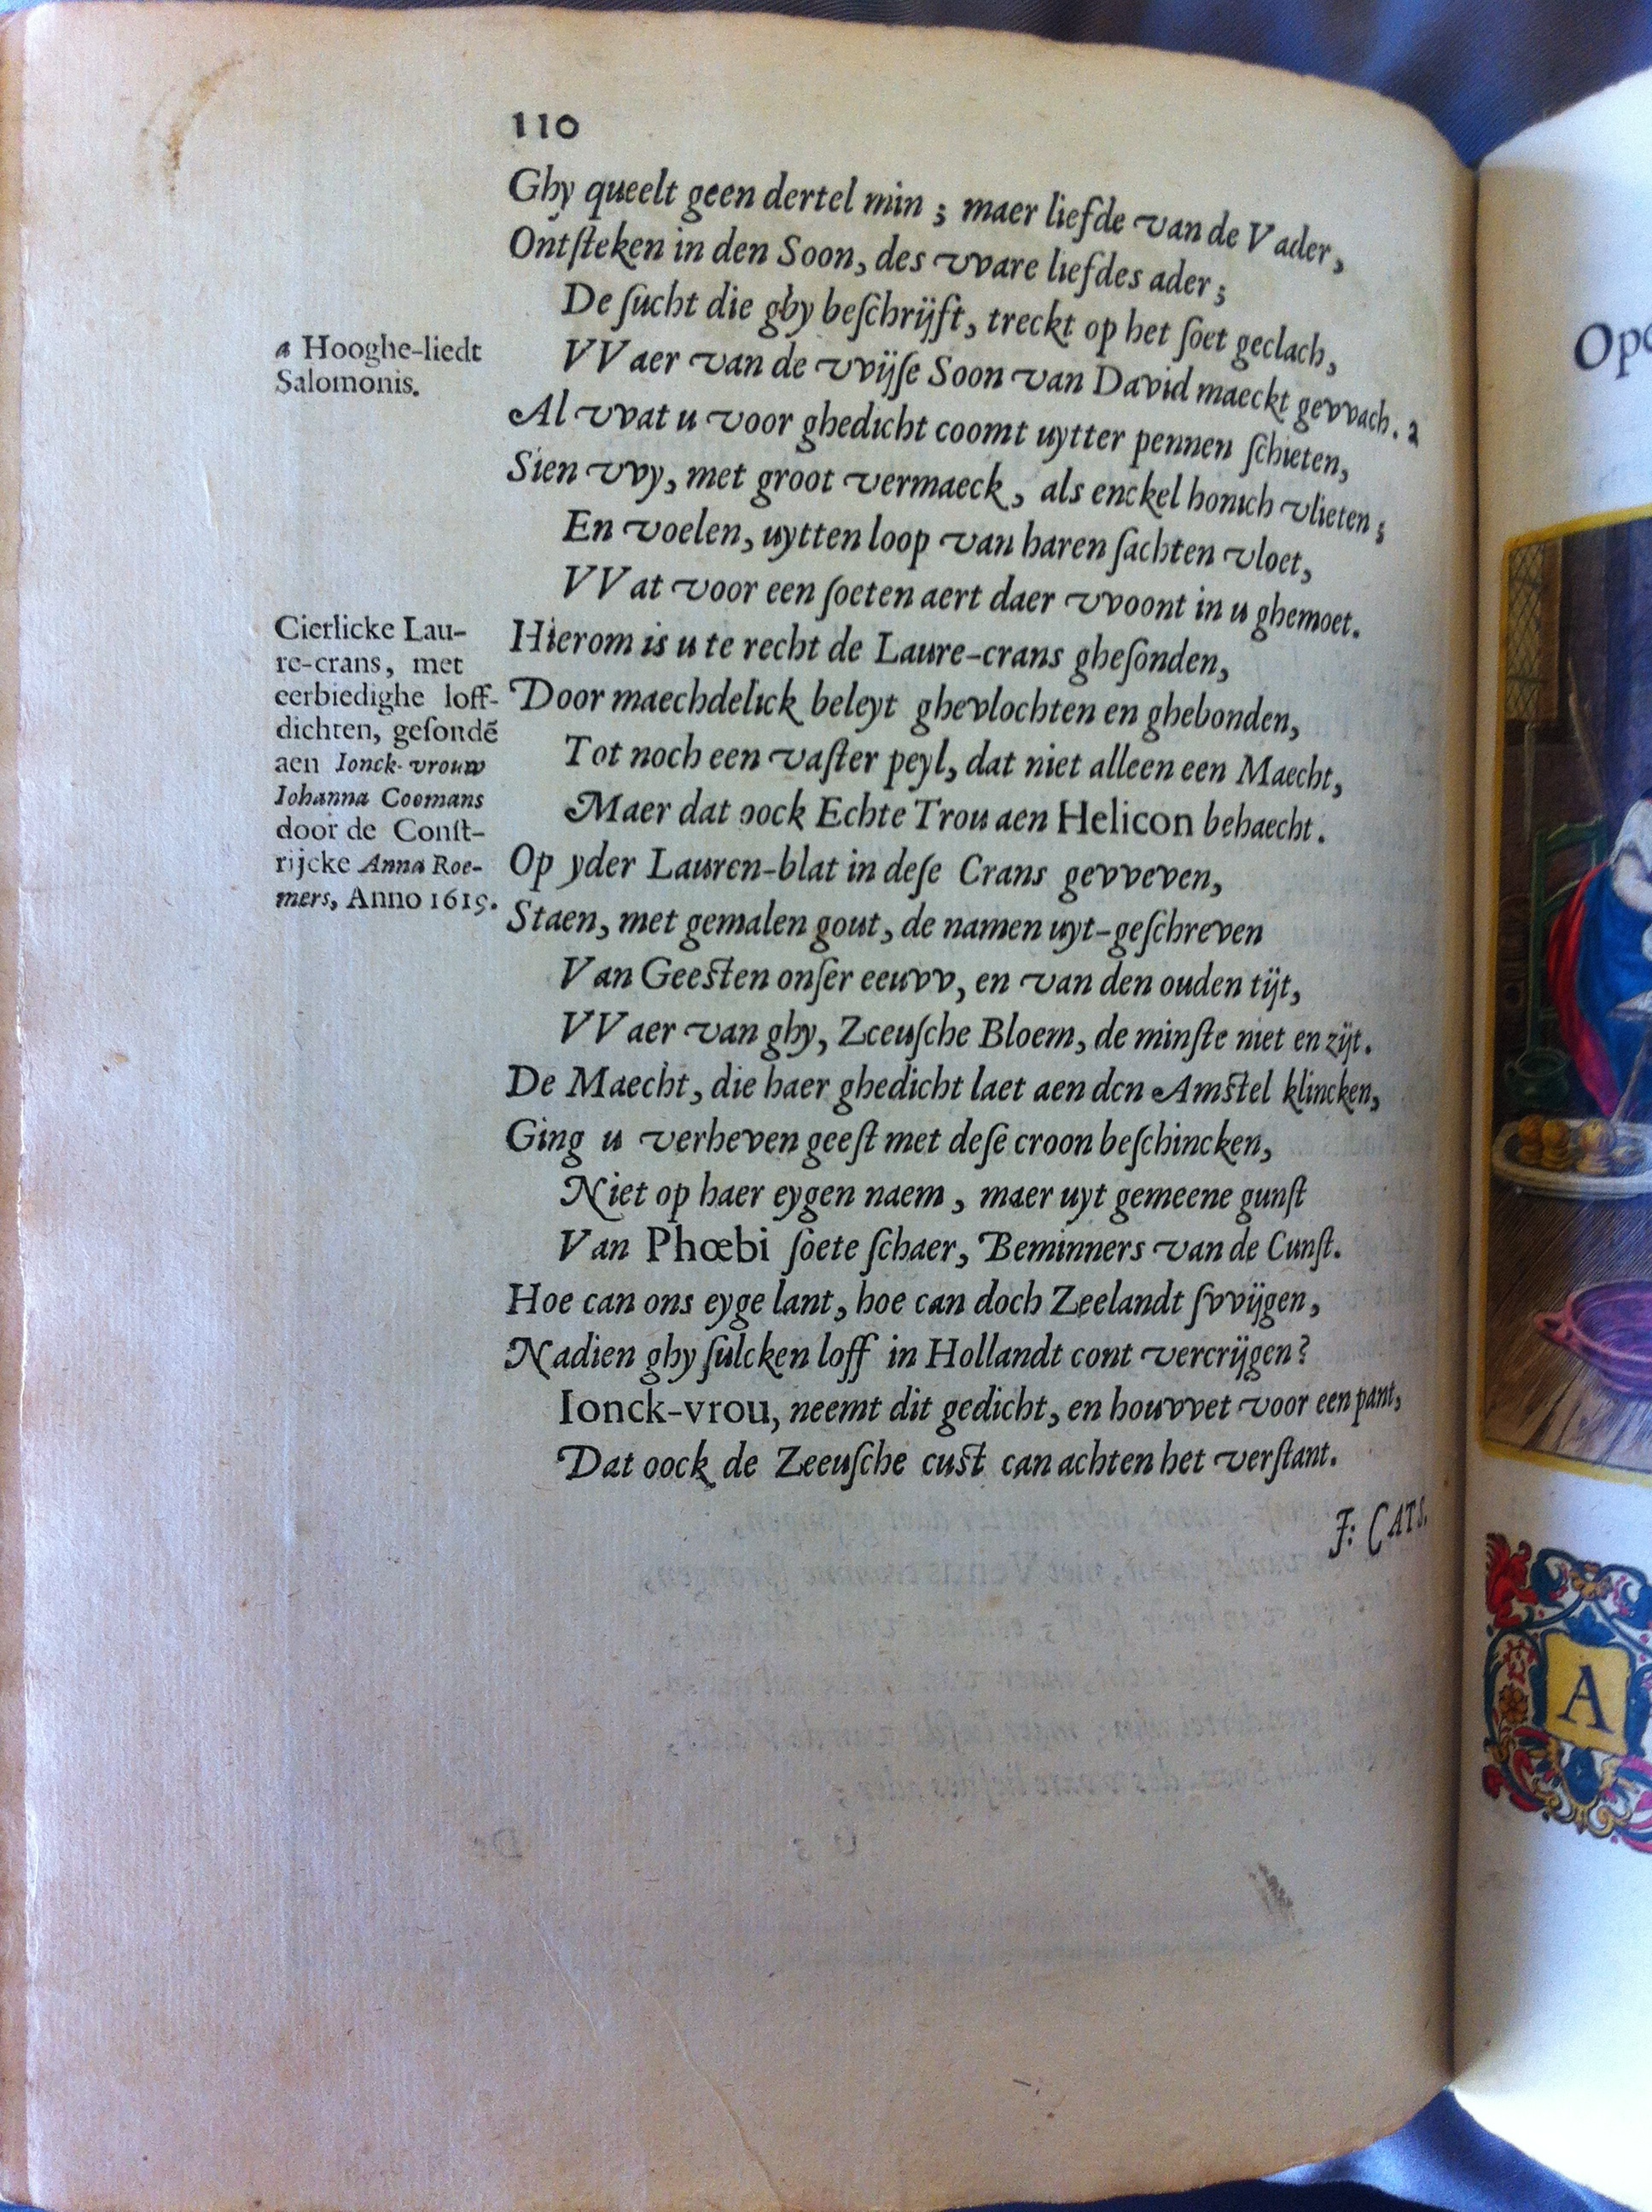 110
Ghy queelt geen dertel min ; maer liefde van de Vader,
Ontſteken in den Soon, des vvare liefdes ader ;
De ſucht die ghy beſchrijft, treckt op het ſoet geclach,
VVaer van de vvijſe Soon van David maeckt gevvach. a
Al vvat u voor ghedicht coomt uytter pennen ſchieten,
Sien vvy, met groot vermaeck, als enckel honich vlieten ;
En voelen, uytten loop van haren ſachten vloet,
VVat voor een ſoeten aert daer vvoont in u ghemoet.
Hierom is u te recht de Laure-crans gheſonden,
Door maechdelick beleyt ghevlochten en ghebonden,
Tot noch een vaſter peyl, dat niet alleen een Maecht,
Maer dat oock Echte Trou aen Helicon behaecht.
Op yder Lauren-blat in deſe Crans gevveven,
Staen, met gemalen gout, de namen uyt-geſchreven
Van Geeſten onſer eeuvv, en van den ouden tijt,
VVaer van ghy, Zeeuſche Bloem, de minſte niet en zijt.
De Maecht, die haer ghedicht laet aen den Amſtel klincken,
Ging u verheven geeſt met deſe croon beſchincken,
Niet op haer eygen naem, maer uyt gemeene gunſt
Van Phœbi ſoete ſchaer, Beminners van de Cunſt.
Hoe can ons eyge lant, hoe can doch Zeelandt ſvvijgen,
Nadien ghy ſulcken loff in Hollandt cont vercrijgen?
Ionck-vrou, neemt dit gedicht, en houvvet voor een pant,
Dat oock de Zeeuſche cuſt can achten het verſtant.
J: CATS.
a Hooghe-liedt
Salomonis.
Cierlicke Lau-
re-crans, met
eerbiedighe loff-
dichten, geſondē
aen Ionck-vrouw
Iohanna Coomans
door de Conſt-
rijcke Anna Roe-
mers, Anno 1619.
A